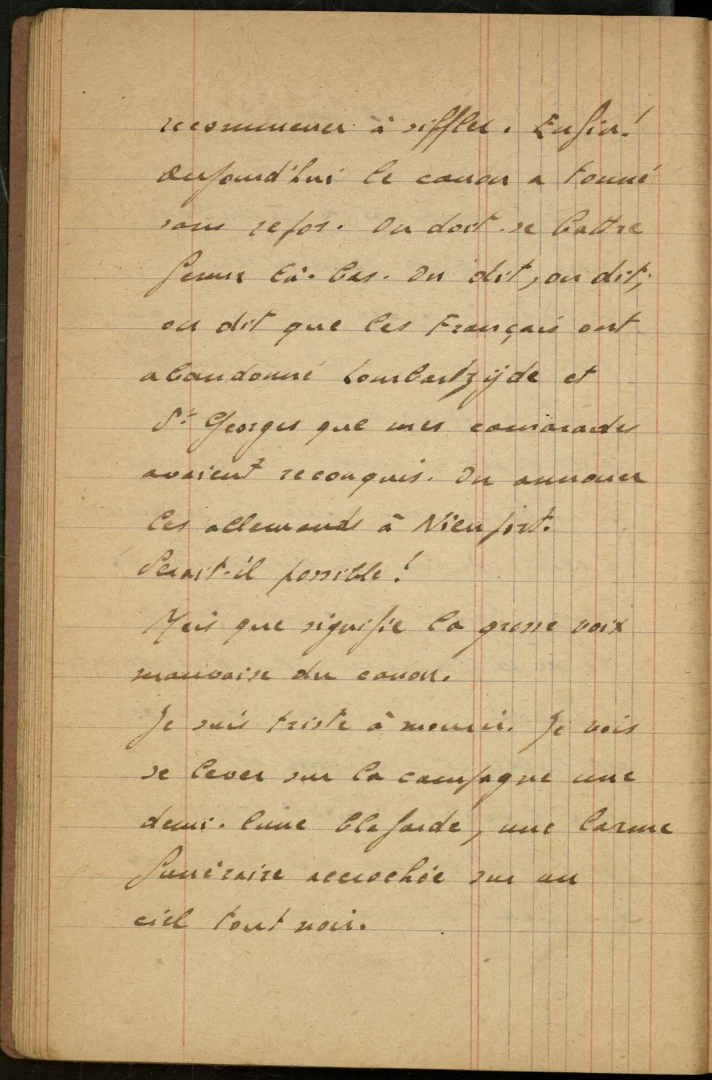 recommencer à siffler. Enfin!
Aujourd'hui le canon a tonné
sans repos. On doit se battre
ferme là-bas. On dit, on dit,
on dit que les Français ont
abandonné Lombartzijde et
St Georges que mes camarades
avaient reconquis. On annonce
les allemands à Nieuport.
Serait-il possible!
Mais que signifie la grosse voix
mauvaise du canon.
Je suis triste à mourir. Je vois
se lever sur la campagne une
demi-lune blafarde, une larme
funéraire accrochée sur un
ciel tout noir.